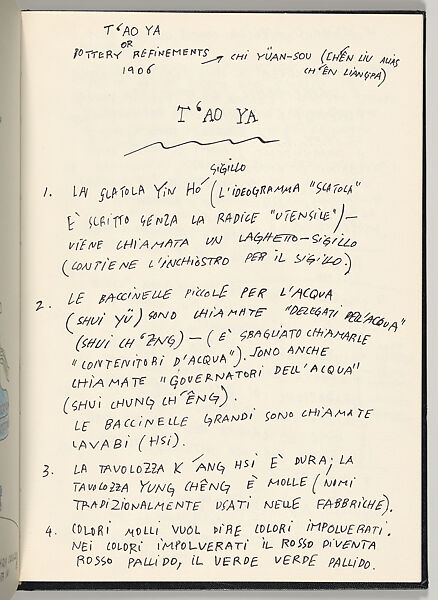 T'AO YA
OR
POTTERY REFINEMENTS → CHI YÜAN-SOU (CHÊN LIU ALIAS
1906 CH'ÊN LIANGPA)
T'AO YA
SIGILLO
1. LA SCATOLA YIN HO (L'IDEOGRAMMA "SCATOLA"
È SCRITTO SENZA LA RADICE "UTENSILE")—
VIENE CHIAMATA UN LAGHETTO-SIGILLO
(CONTIENE L'INCHIOSTRO PER IL SIGILLO.)
2. LE BACCINELLE PICCOLE PER L'ACQUA
(SHUI YÜ) SONO CHIAMATE "DELEGATI DELL'ACQUA"
(SHUI CH'ZNG) — (È SBAGLIATO CHIAMARLE
"CONTENITORI D'ACQUA"). SONO ANCHE
CHIAMATE "GOVERNATORI DELL'ACQUA"
(SHUI CHUNG CH'ÊNG).
LE BACCINELLE GRANDI SONO CHIAMATE
LAVABI (HSI).
3. LA TAVOLOZZA K'ANG HSI È DURA; LA
TAVOLOZZA YUNG CHÊNG È MOLLE (NOMI
TRADIZIONALMENTE USATI NELLE FABBRICHE).
4. COLORI MOLLI VUOL DIRE COLORI IMPOLVERATI.
NEI COLORI IMPOLVERATI IL ROSSO DIVENTA
ROSSO PALLIDO, IL VERDE VERDE PALLIDO.